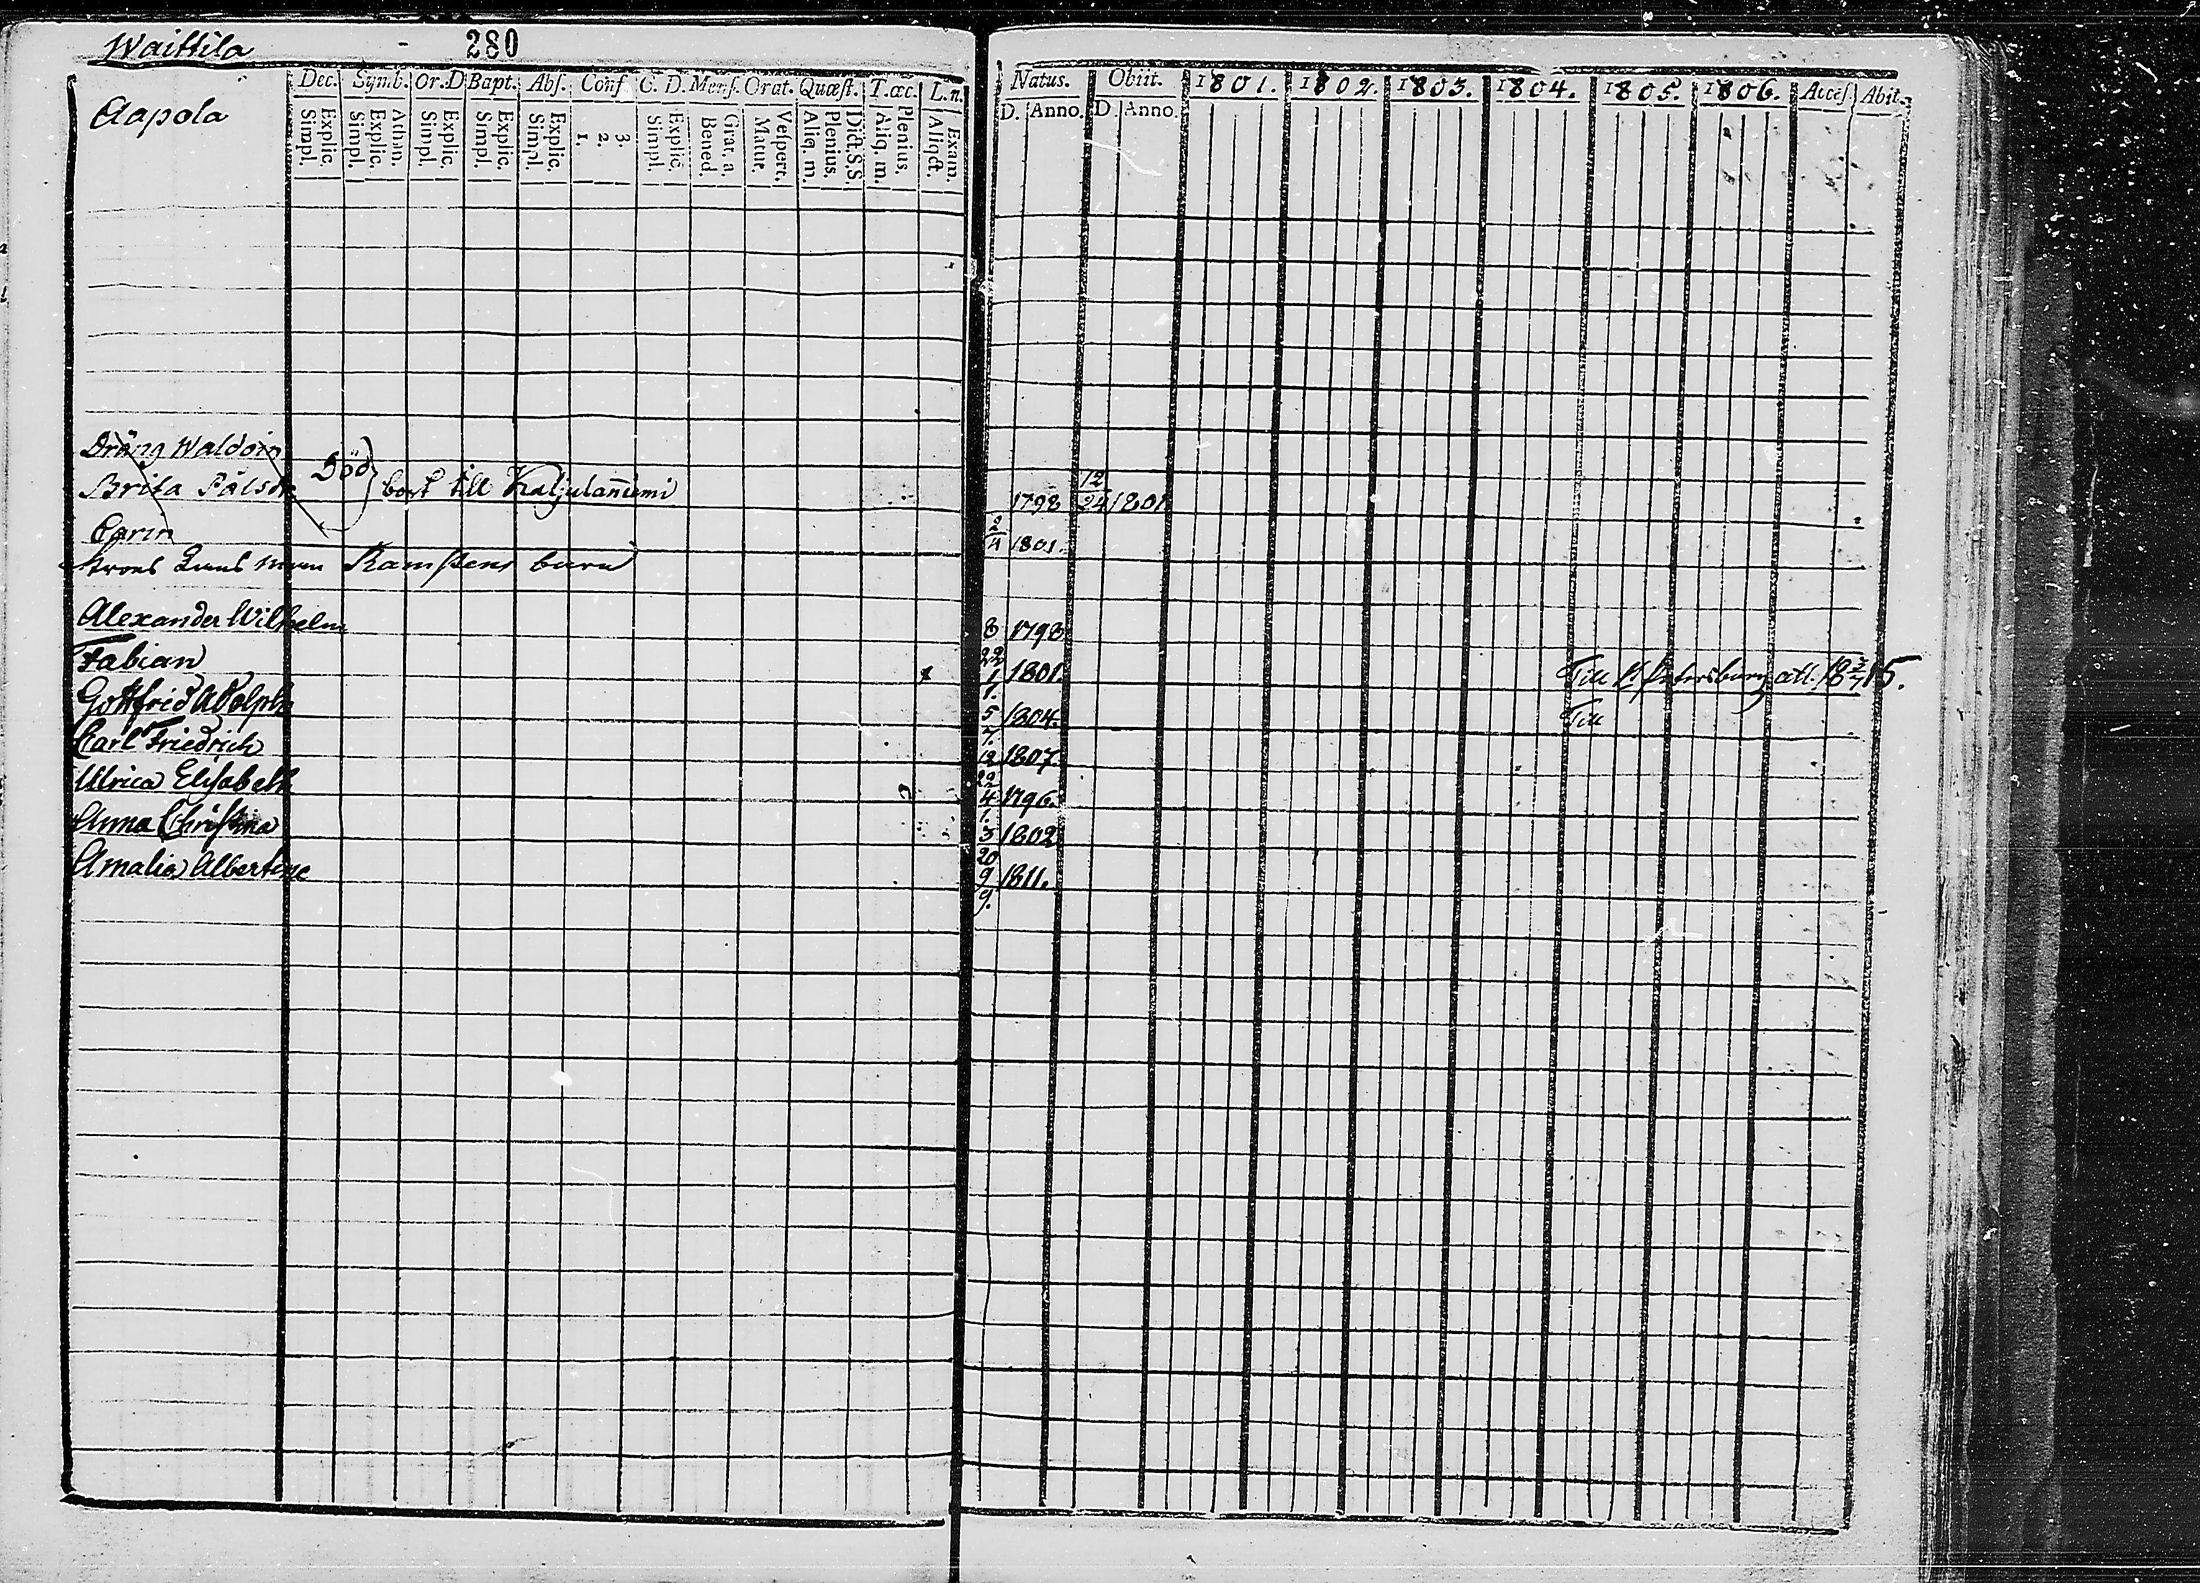 Waittila 280
Aapola
Dec. Symb. Or. D. Bapt. Abſ. Conf. C. D. Menſ. Orat. Quæſt. T. œc. L. n.
Explic. Simpl. Athan. Explic. Simpl. Explic. Simpl. Explic. Simpl. Explic. Simpl. 3. 2. 1. Explic. Simpl. Grat. a. Bened. Veſpert. Matut. Dict. S. S. Plenius. Aliq. m. Plenius. Aliq. m. Exam. Aliqđ.
Natus. Obiit. 1801. 1802. 1803. 1804. 1805. 1806. Acceſ. Abit.
D. Anno. D. Anno.
Dräng Waldoin
Brita Pålsdr Död bort till Kaljulaniemi 1798 12/24 1801
Carin 2/4 1801.
Ramſtens barn
Alexander Wilhelm 8/22 1798
Fabian 1/1. 1801. Till St Petersburg att. 18 3/7 15.
Gottfried Adolph 5/7. 1804. Till
Carl Friedrich 12/22 1807.
Ulrica Eliſabeth 4/1. 1796.
Anna Chriſtina 3/20 1802
Amalia Albertine 9/9. 1811.